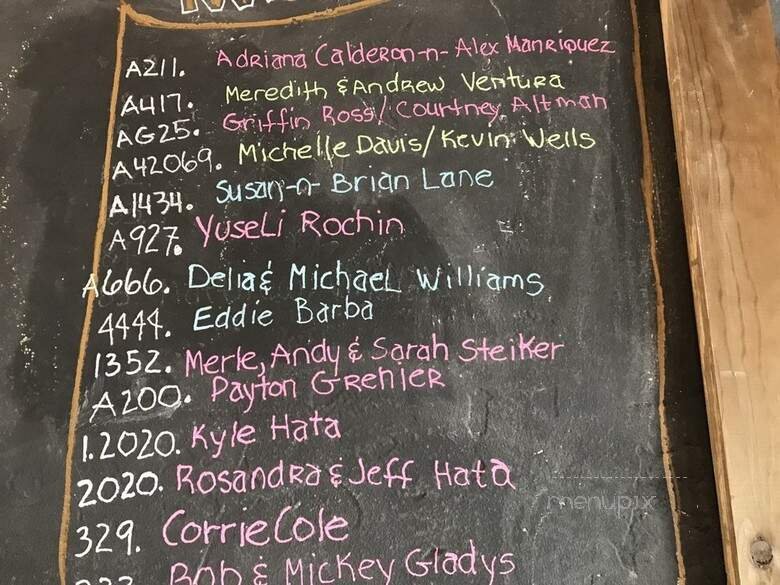 A211. Adriana Calderon-n- Alex Manriquez
A417. Meredith & Andrew Ventura
AG25. Griffin Ross/ Courtney Altman
A42069. Michelle Davis/Kevin Wells
A1434. Susan-n- Brian Lane
A927. Yuseli Rochin
A666. Delia & Michael Williams
4444. Eddie Barba
1352. Merle, Andy & Sarah Steiker
A200. Payton Grenier
1.2020. Kyle Hata
2020. Rosandra & Jeff Hata
329. Corrie Cole
Bob & Mickey Gladys
menupix